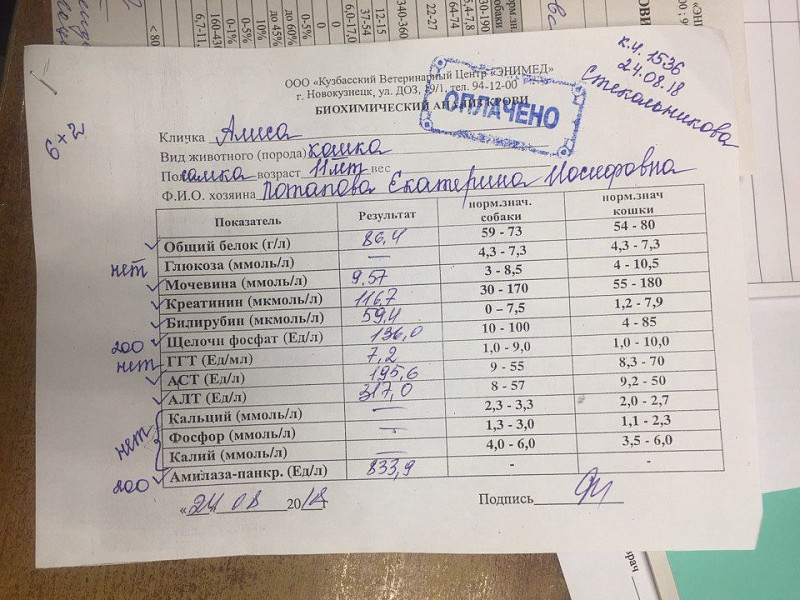 ООО «Кузбасский Ветеринарный Центр «ЭНИМЕД»
г. Новокузнецк, ул. ДОЗ, 19/1, тел. 94-12-00
БИОХИМИЧЕСКИЙ АНАЛИЗ КРОВИ
ОПЛАЧЕНО
к.ч. 1536
24.08.18
Стекольникова
6×2
Кличка Алиса
Вид животного (порода) кошка
Пол самка возраст 11 лет вес
Ф.И.О. хозяина Потапова Екатерина Иосифовна
Показатель Результат норм.знач. собаки норм.знач кошки
Общий белок (г/л) 86,4 59 - 73 54 - 80
нет Глюкоза (ммоль/л) — 4,3 - 7,3 4,3 - 7,3
Мочевина (ммоль/л) 9,57 3 - 8,5 4 - 10,5
Креатинин (мкмоль/л) 116,7 30 - 170 55 - 180
Билирубин (мкмоль/л) 59,4 0 – 7,5 1,2 - 7,9
200 Щелочн фосфат (Ед/л) 136,0 10 - 100 4 - 85
нет ГГТ (Ед/мл) 7,2 1,0 - 9,0 1,0 - 10,0
АСТ (Ед/л) 195,6 9 - 55 8,3 - 70
АЛТ (Ед/л) 317,0 8 - 57 9,2 - 50
Кальций (ммоль/л) — 2,3 - 3,3 2,0 - 2,7
нет Фосфор (ммоль/л) — 1,3 - 3,0 1,1 - 2,3
Калий (ммоль/л) — 4,0 - 6,0 3,5 - 6,0
200 Амилаза-панкр. (Ед/л) 833,9 - -
«24 08 2018 г
Подпись